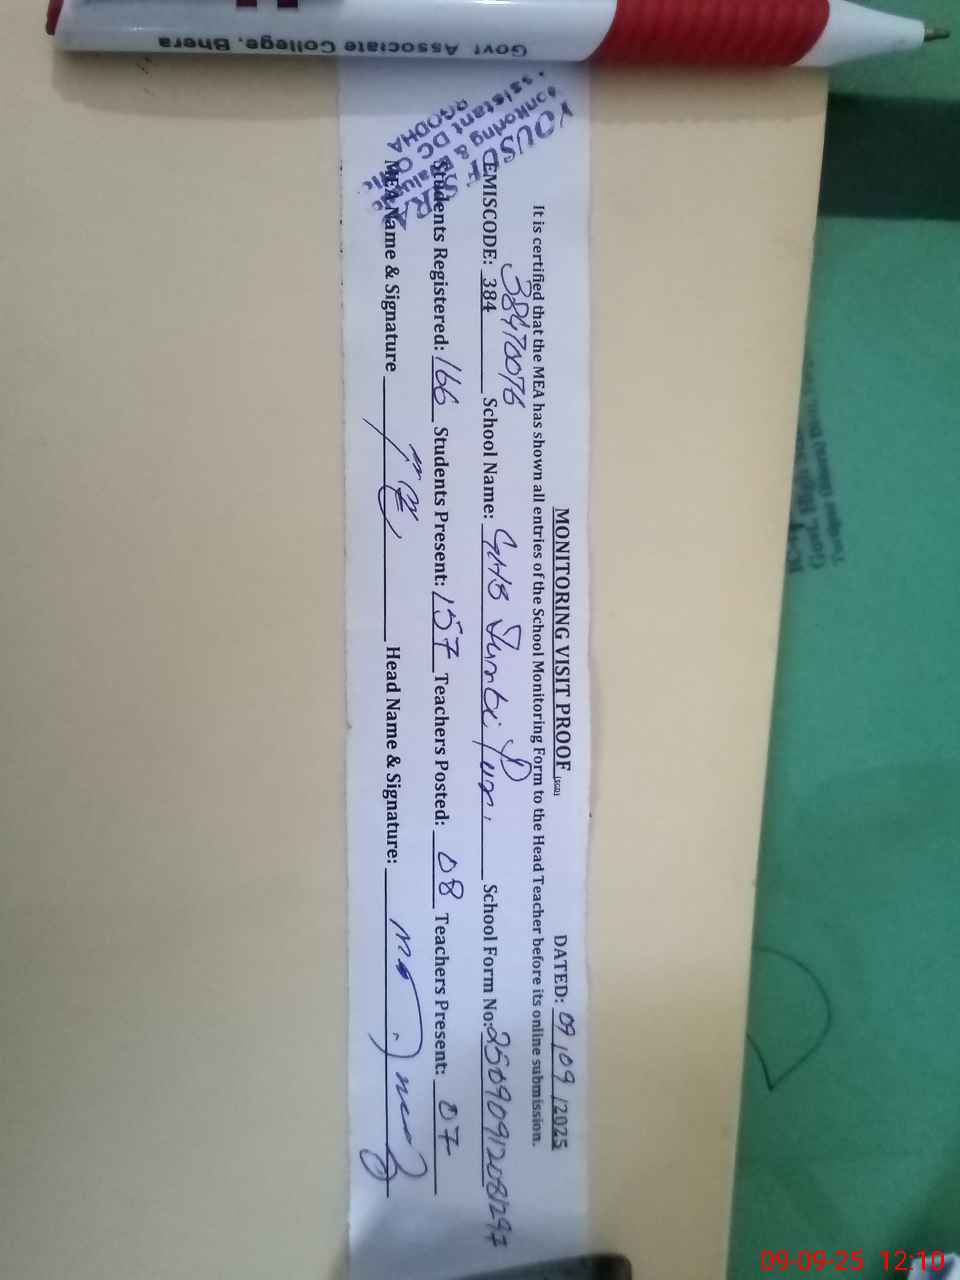 Govt Associate College, Bhera
MONITORING VISIT PROOF (SGD) DATED: 09/09/2025
It is certified that the MEA has shown all entries of the School Monitoring Form to the Head Teacher before its online submission.
38470076
EMISCODE: 384 School Name: School Form No: 25090912081297
Students Registered: 166 Students Present: 157 Teachers Posted: 08 Teachers Present: 07
MEA Name & Signature Head Name & Signature:
Assistant DC O
09-09-25 12:10